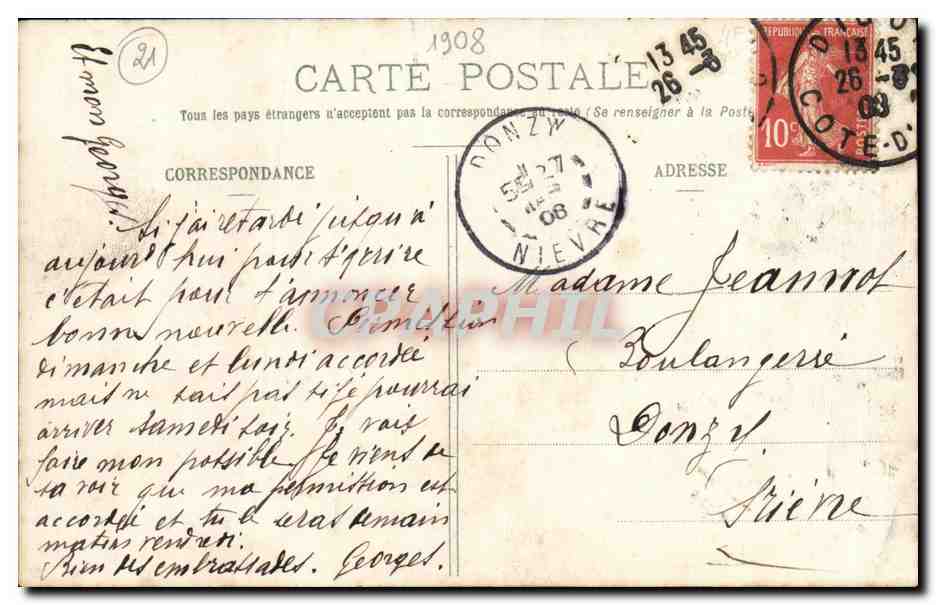 21
1908
CARTE POSTALE
Tous les pays étrangers n'acceptent pas la correspondance au recto (Se renseigner à la Poste
CORRESPONDANCE
ADRESSE
Georges
Si j'ai retardé jusqu'à
aujourd'hui pour t'écrire
c'était pour t'annoncer
bonne nouvelle. Permission
dimanche et lundi accordée
mais ne sais pas si je pourrai
arriver samedi soir. Je vais
faire mon possible. Je viens de
savoir que ma permission est
accordée et tu le seras demain
matin vendredi.
Bien des embrassades. Georges.
Madame Jeannot
Boulangerie
Donzy
Nièvre
DONZY
27
08
NIEVRE
13 45
26 -3
REPUBLIQUE FRANÇAISE
10 c
POSTES
13 45
26 -3
08
COTE-D'
CPAPHIL